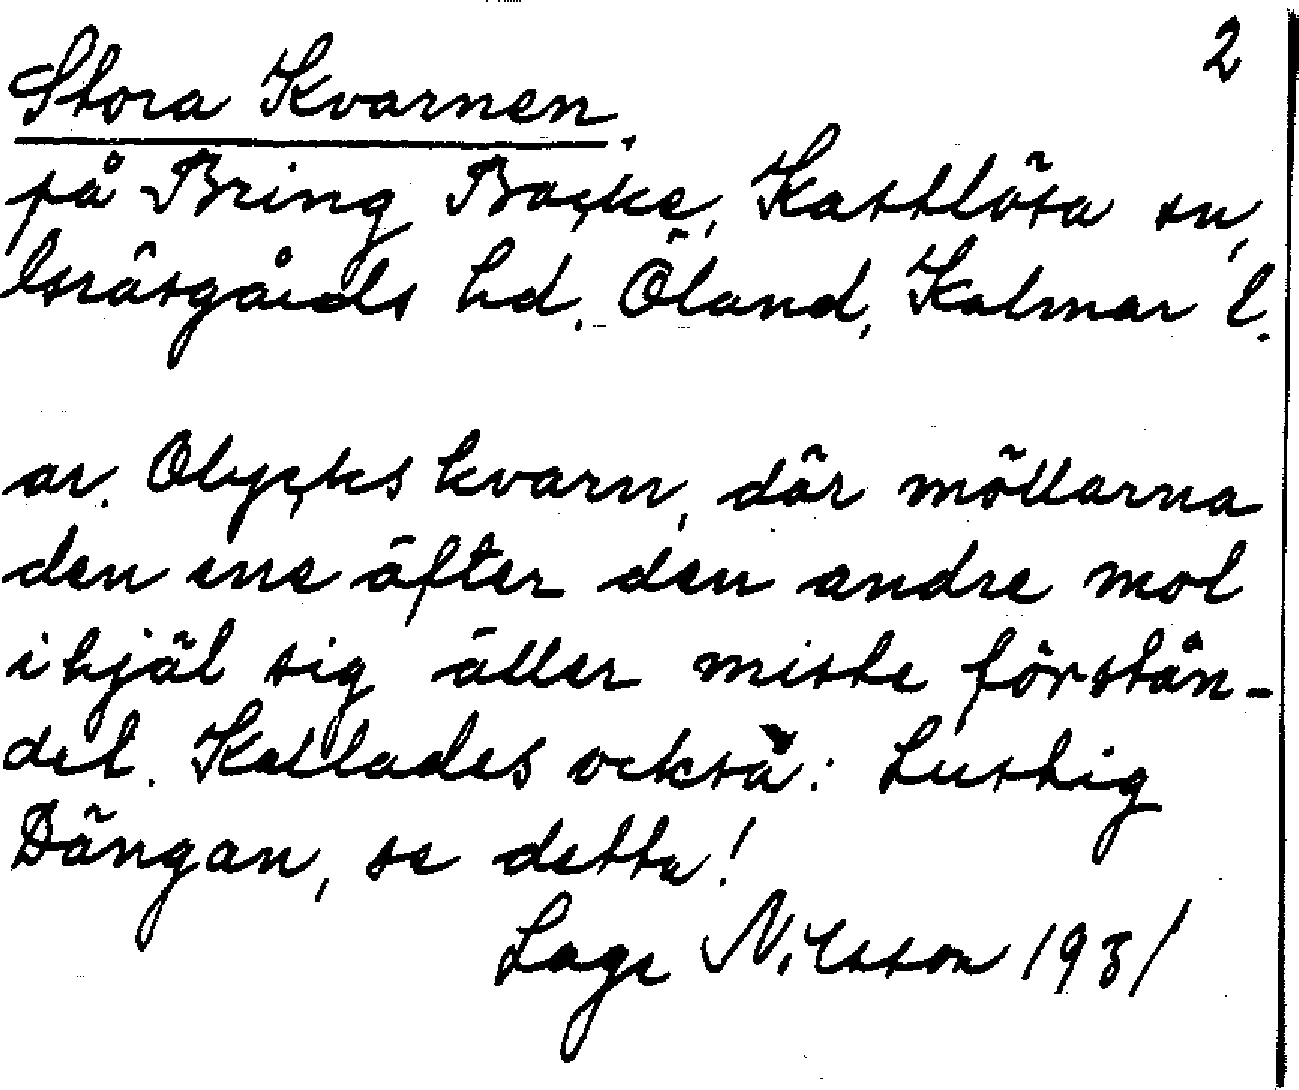 2
Stora Kvarnen.
på Bring Backe, Kastlösa sn,
Gräsgårds hd. Öland, Kalmar l.
ar. Olycks kvarn, där möllarna
den ene äfter den andre mol
ihjäl sig äller miste förstån-
det. Kallades också: Lustig
Dängan, se detta!
Lage Nilsson 1931